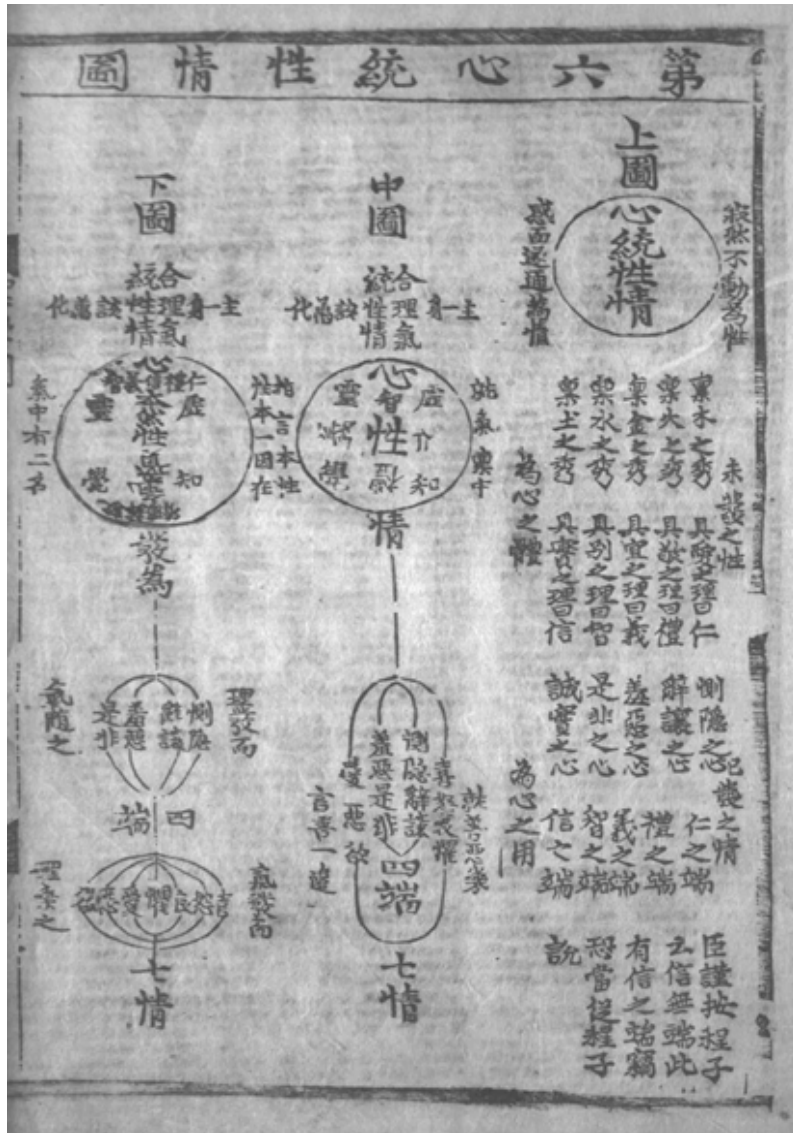 第六心統性情圖
上圖
寂然不動爲性
心統性情
感而遂通爲情
未發之性
稟木之秀 具愛之理曰仁
稟火之秀 具敬之理曰禮
稟金之秀 具宜之理曰義
稟水之秀 具別之理曰智
稟土之秀 具實之理曰信
爲心之體
已發之情
惻隱之心 仁之端
辭讓之心 禮之端
羞惡之心 義之端
是非之心 智之端
誠實之心 信之端
爲心之用
臣謹按程子
云信無端此
有信之端竊
恐當從程子
說
中圖
合理氣
統性情
主一身
該萬化
心
虛
靈
知
覺
仁
義
禮
智
性
就氣稟中
指言本性
情
惻隱辭讓
羞惡是非
四端
喜怒哀懼
愛惡欲
就善惡幾
言善一邊
七情
下圖
合理氣
統性情
主一身
該萬化
心
虛
靈
知
覺
仁
禮
義
智
性
性本一因在
氣中有二名
發爲
理發而
氣隨之
惻隱
辭讓
羞惡
是非
四端
氣發而
理乘之
喜怒哀懼愛惡欲
七情